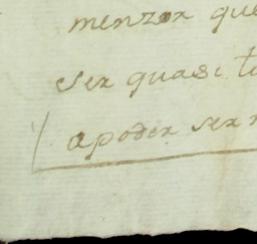 menzor que
ser quasi t
apoder ser